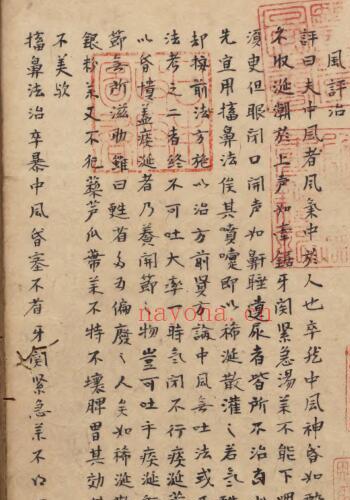 風評治
評曰夫中風者風氣中於人也卒然中風神昏如醉
不收涎潮於上声如牽鋸牙関緊急湯薬不能下咽
須更但眼閉口開声如鼾睡遺尿者皆所不治
先宜用搐鼻法俟其噴嚏即以稀涎散灌之若氣
却按前法方施以治方前賢方論中風無吐法或
法考之二者終不可吐大率一時氣閉不行痰涎
以昏憒盖痰涎者乃養関節之物豈可吐乎痰涎
節無所滋助雖曰甦省多為偏廢之人矣如稀涎
銀粉薬又不犯藜芦瓜蒂薬不特不壊脾胃其効
不美欤
搐鼻法治卒暴中風昏塞不省牙関緊急薬不
navona.hk